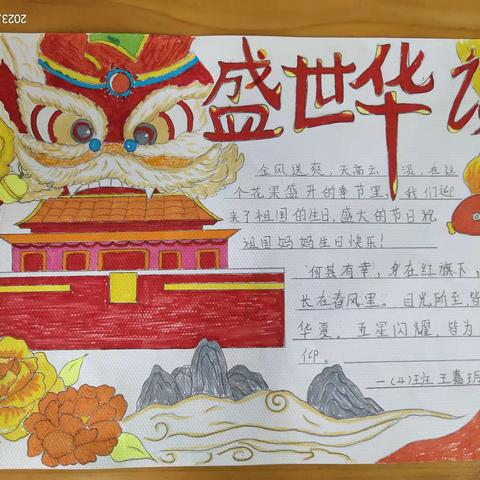 盛世华
金风送爽，天高云淡，在这
个花果盛开的季节里，我们迎
来了祖国的生日，盛大的节日祝
祖国妈妈生日快乐！
何其有幸，身在红旗下，
长在春风里。目光所至皆
华夏。五星闪耀，皆为
仰。
一（4）班 王嘉玥
2023